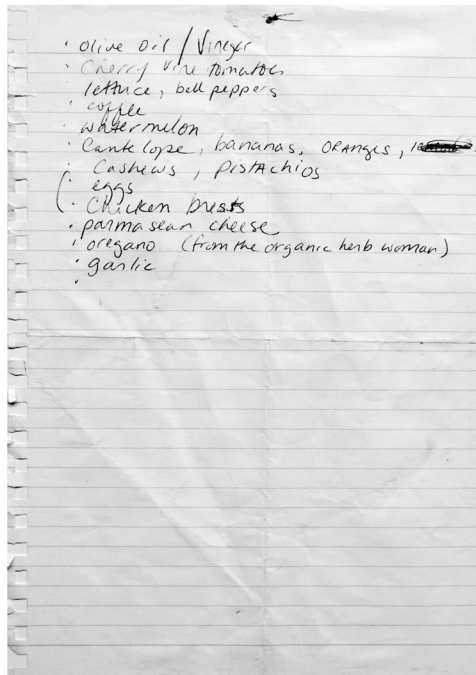 • olive oil / Vineger
• Cherry vine tomatoes
lettuce, bell peppers
• coffee
• watermelon
• Cantelope, bananas, ORANGES,
• Cashews, PISTAchios
• eggs
• Chicken brests
• parmasean cheese
• oregano (from the organic herb woman)
• garlic
•